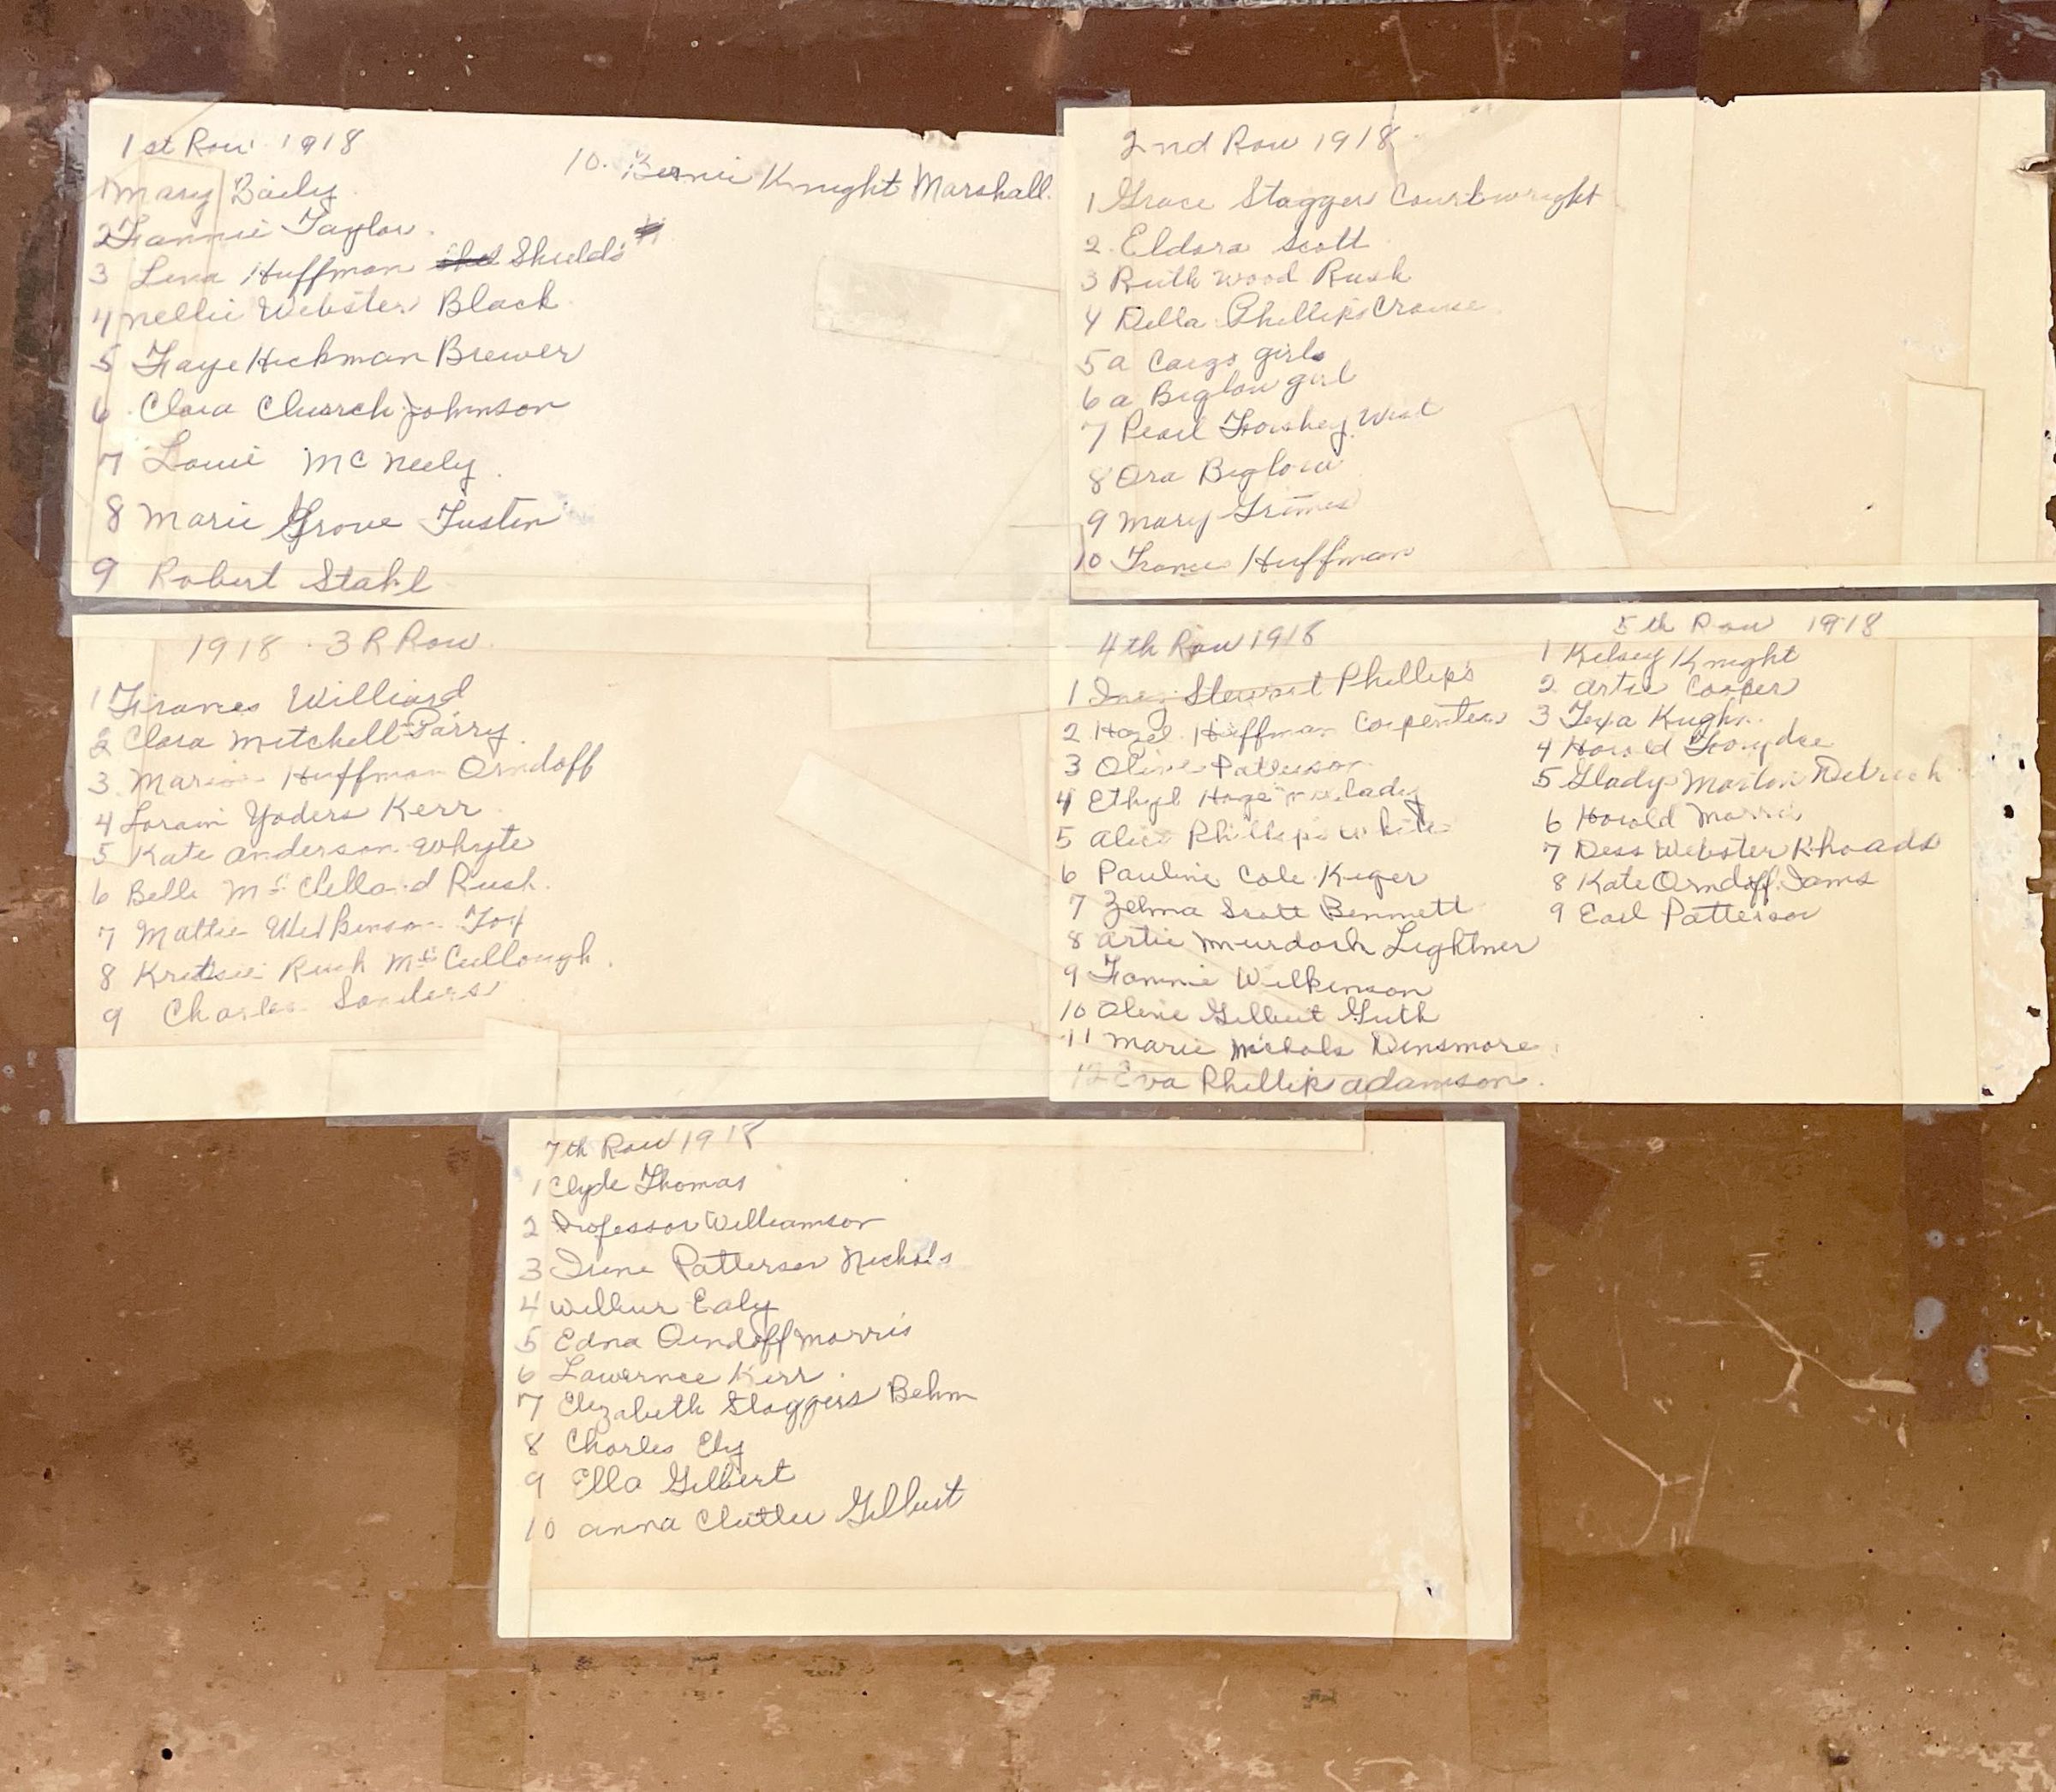 1st Row 1918
1 Mary Baily
2 Fannie Taylor
3 Lena Huffman Shields
4 Nellie Webster Black
5 Faye Hickman Brewer
6 Clara Church Johnson
7 Louie McNeely
8 Marie Grove Fustin
9 Robert Stahl
10. Knight Marshall
2nd Row 1918
1 Grace Stagger Courtwright
2. Eldora Scott
3 Ruth Wood Rush
4 Della Phillips Crouse
5 a girls
6 a Biglow girl
7 Pearl Forshey West
8 Ora Biglow
9 Mary Grimes
10 Huffman
1918 3 R Row
1 Frances Williard
2 Clara Mitchell Parry
3. Marie Huffman Orndoff
4 Lorain Yoders Kerr
5 Kate Anderson Whyte
6 Belle McClelland Rush.
7 Mattie Wilkinson Fox
8 Rush McCullough.
9 Charles Sanders
4th Row 1918
1 Inez Stewart Phillips
2 Hazel Huffman Carpenter
3 Olive Patterson
4 Ethyl Hoge
5 Alice Phillips White
6 Pauline Cole Kiger
7 Zelma Scott Bennett
8 Artie Murdock Lightner
9 Fannie Wilkinson
10 Olive Gilbert Guth
11 Marie Nichols Dinsmore
12 Eva Phillips Adamson.
5th Row 1918
1 Kelsey Knight
2 Artie Cooper
3 Kughn
4 Harold
5 Glady Morton Detrich
6 Harold Morris
7 Dess Webster Rhoads
8 Kate Orndoff Iams
9 Earl Patterson
7th Row 1918
1 Clyde Thomas
2 Professor Williamson
3 Irene Patterson Nichols
4 Wilbur Ealy
5 Edna Orndoff Morris
6 Lawernce Kerr
7 Elizabeth Staggers Behm
8 Charles Ely
9 Ella Gilbert
10 Anna Clutter Gilbert